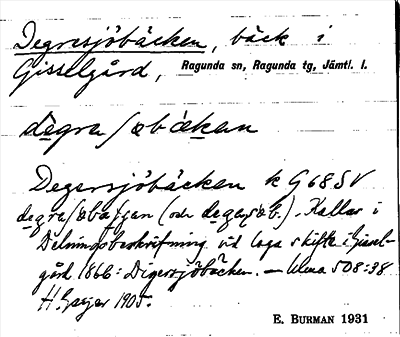 Degresjöbäcken, bäck i
Gisselgård, Ragunda sn, Ragunda tg, Jämtl. l.
Degersjöbäcken k G 68 SV
(och). Kallas i
Delningsbeskrifning vid laga skifte i Gissel-
gård 1866: Digersjöbäcken. — Ulma 508:38
H. Geijer 1905.
E. BURMAN 1931